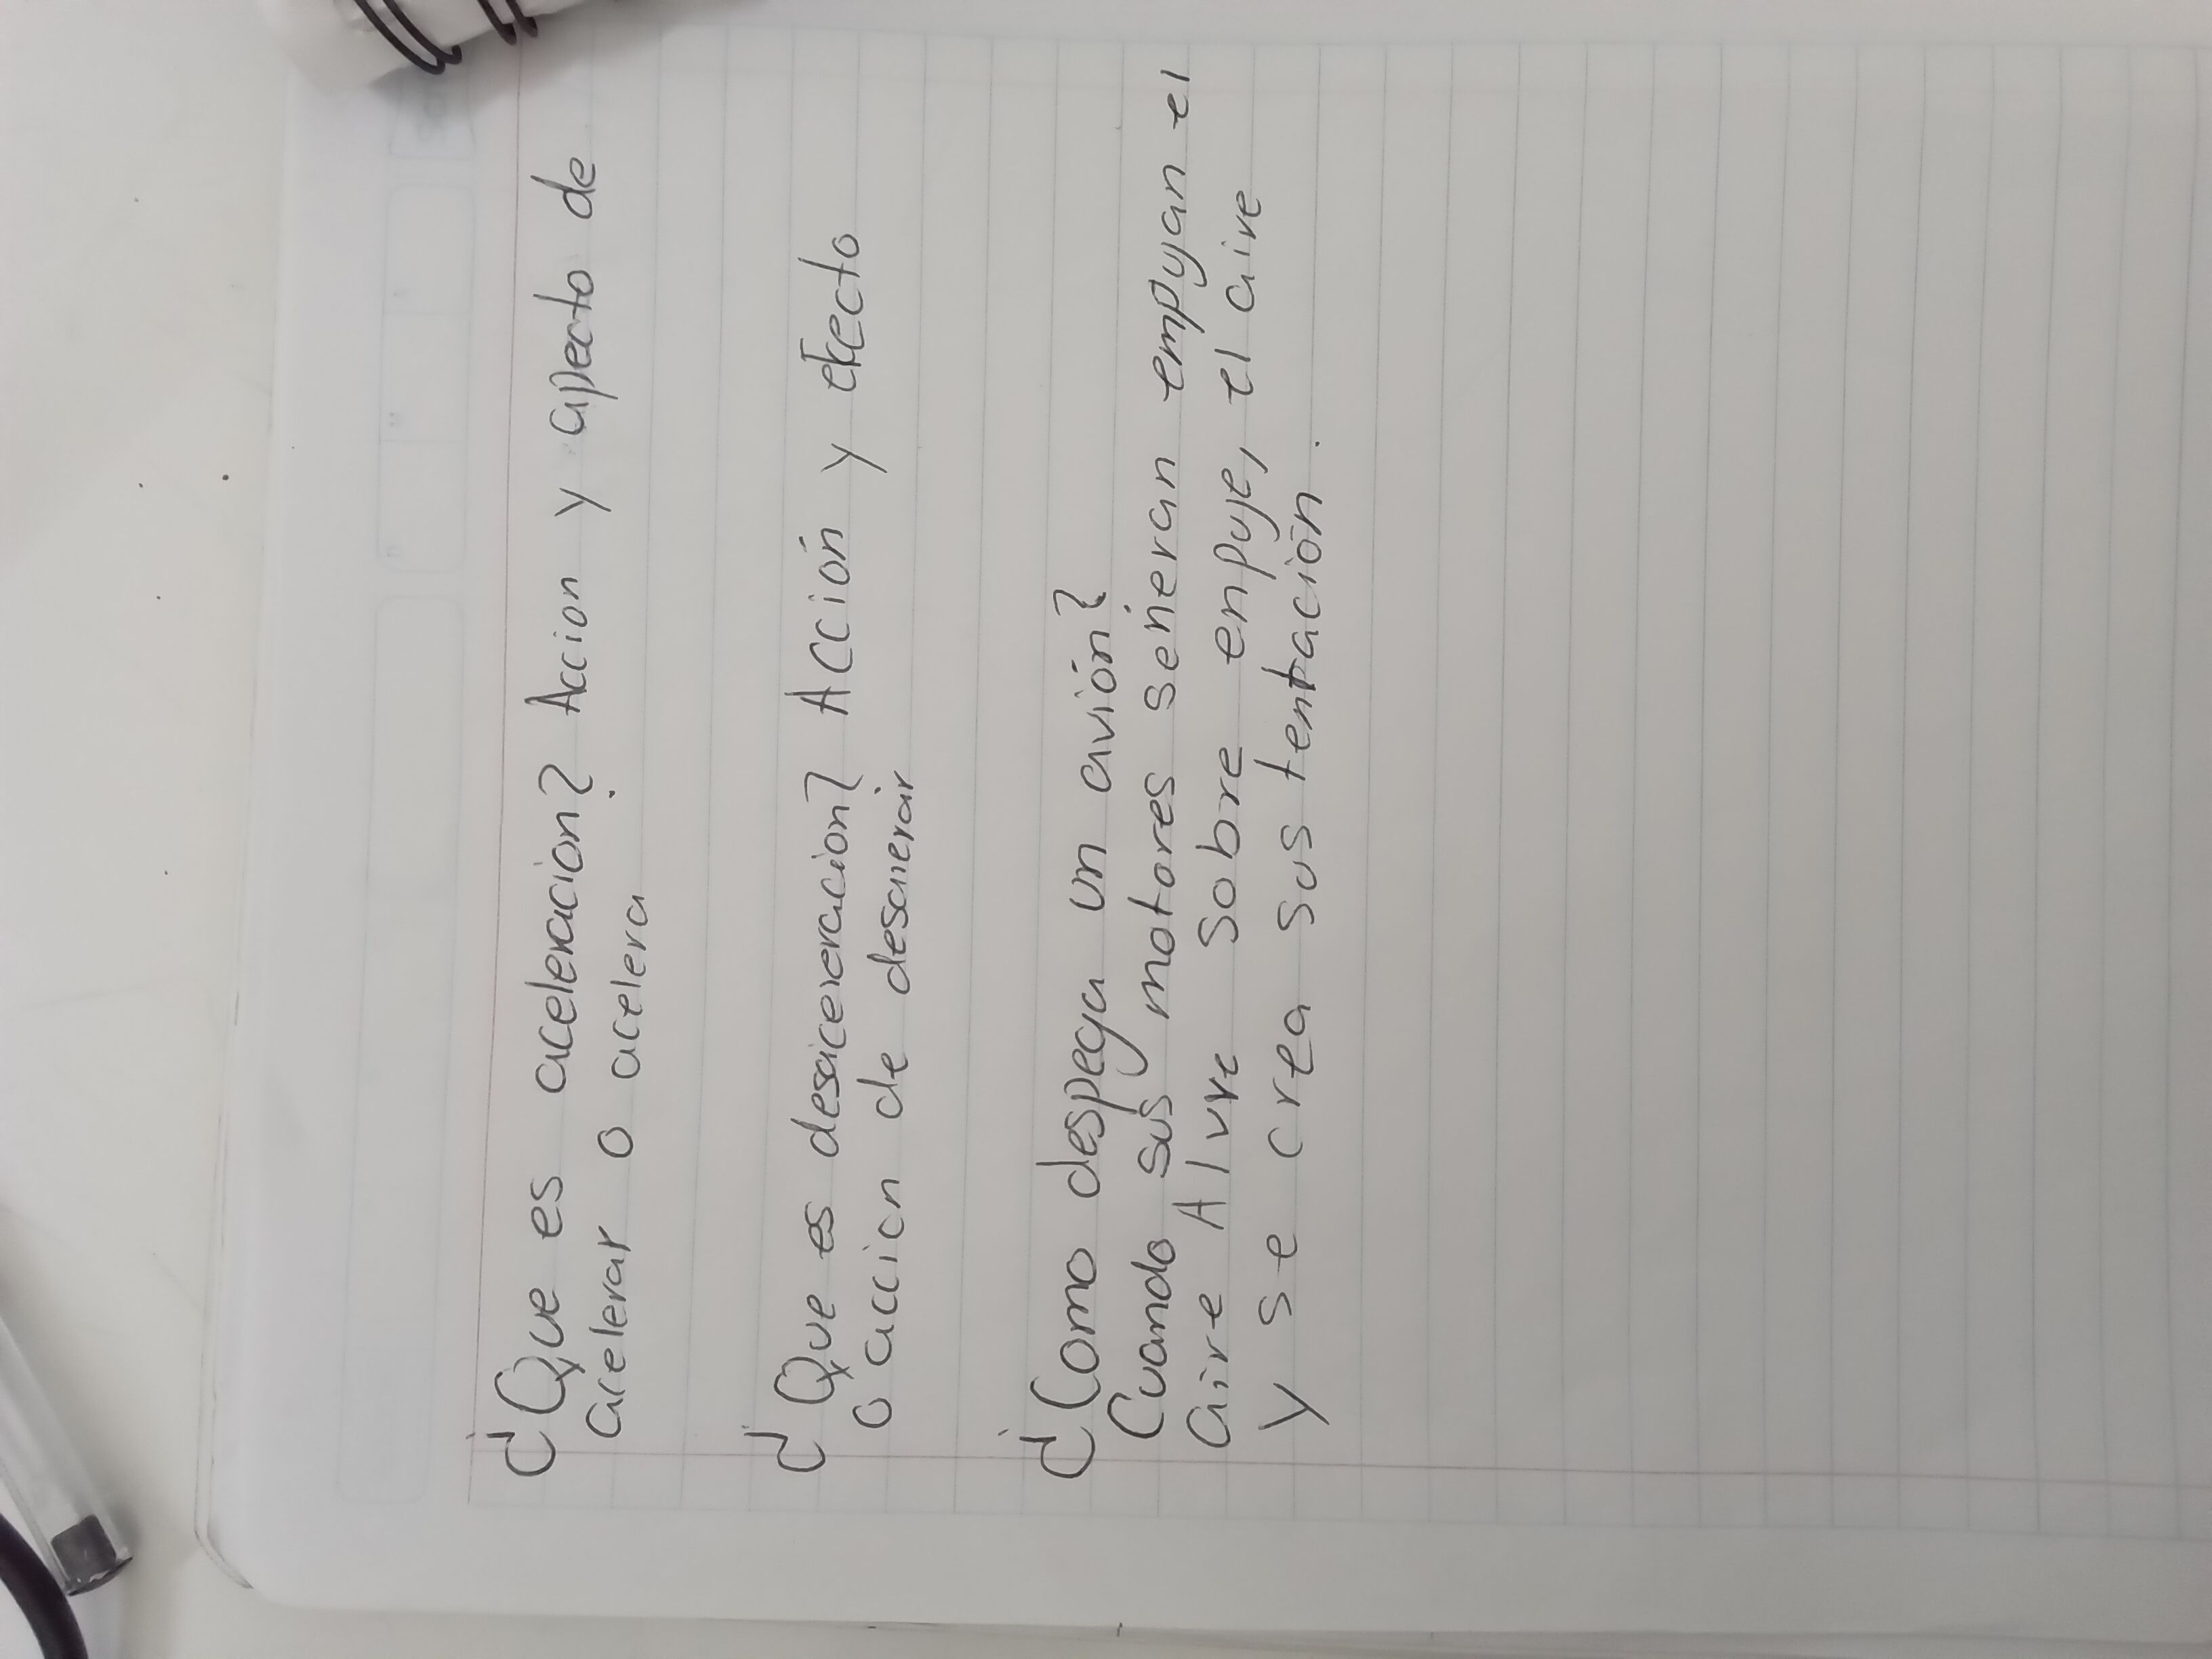 ¿Que es aceleracion? Accion y apecto de
acelerar o acelera
¿Que es desacereracion? Acción y efecto
o accion de desanerar
¿Como despega un avión?
Cuando sus motores señeran empyan el
aire Alvre sobre enpuje, el aire
y se crea sus tentación.